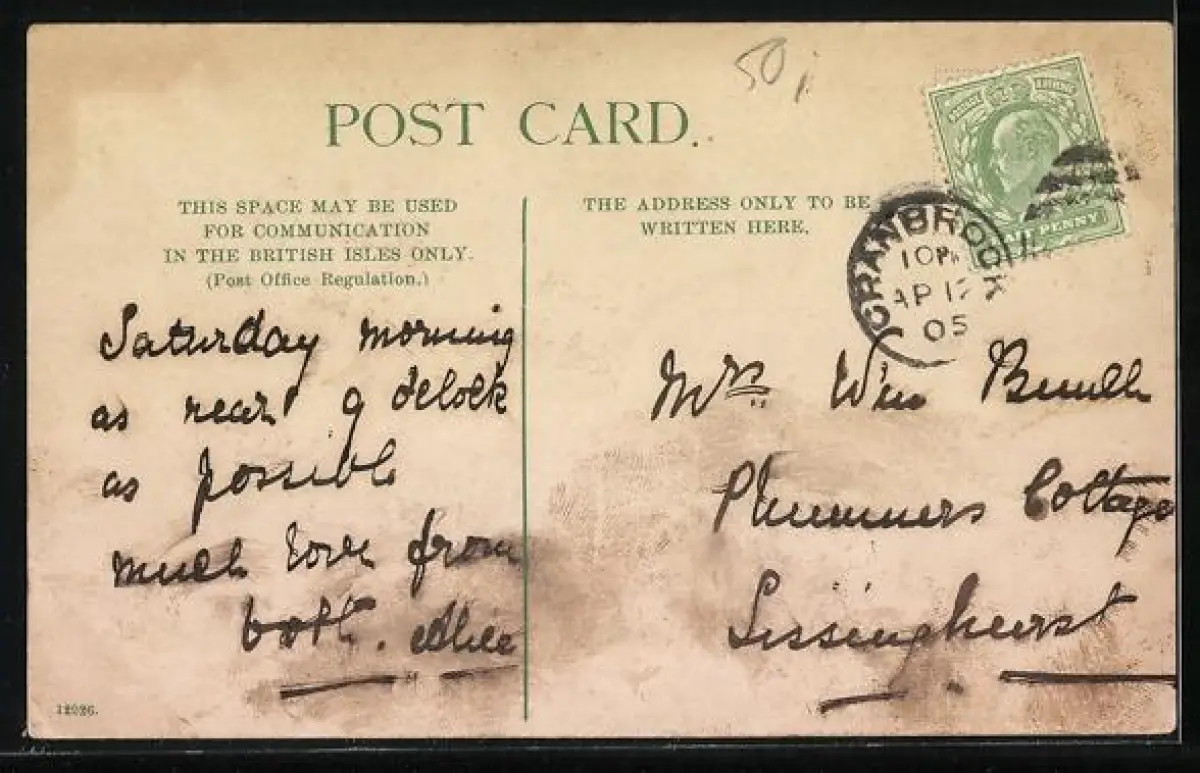 50
POST CARD.
THIS SPACE MAY BE USED
FOR COMMUNICATION
IN THE BRITISH ISLES ONLY.
(Post Office Regulation.)
THE ADDRESS ONLY TO BE
WRITTEN HERE.
POSTAGE REVENUE
HALF PENNY
CRANBROOK
10 PM
AP 17
05
Saturday morning
as near 9 o'clock
as possible
much love from
both. Alice
Mrs Wm
Plummers Cottage
Sissinghurst
12926.